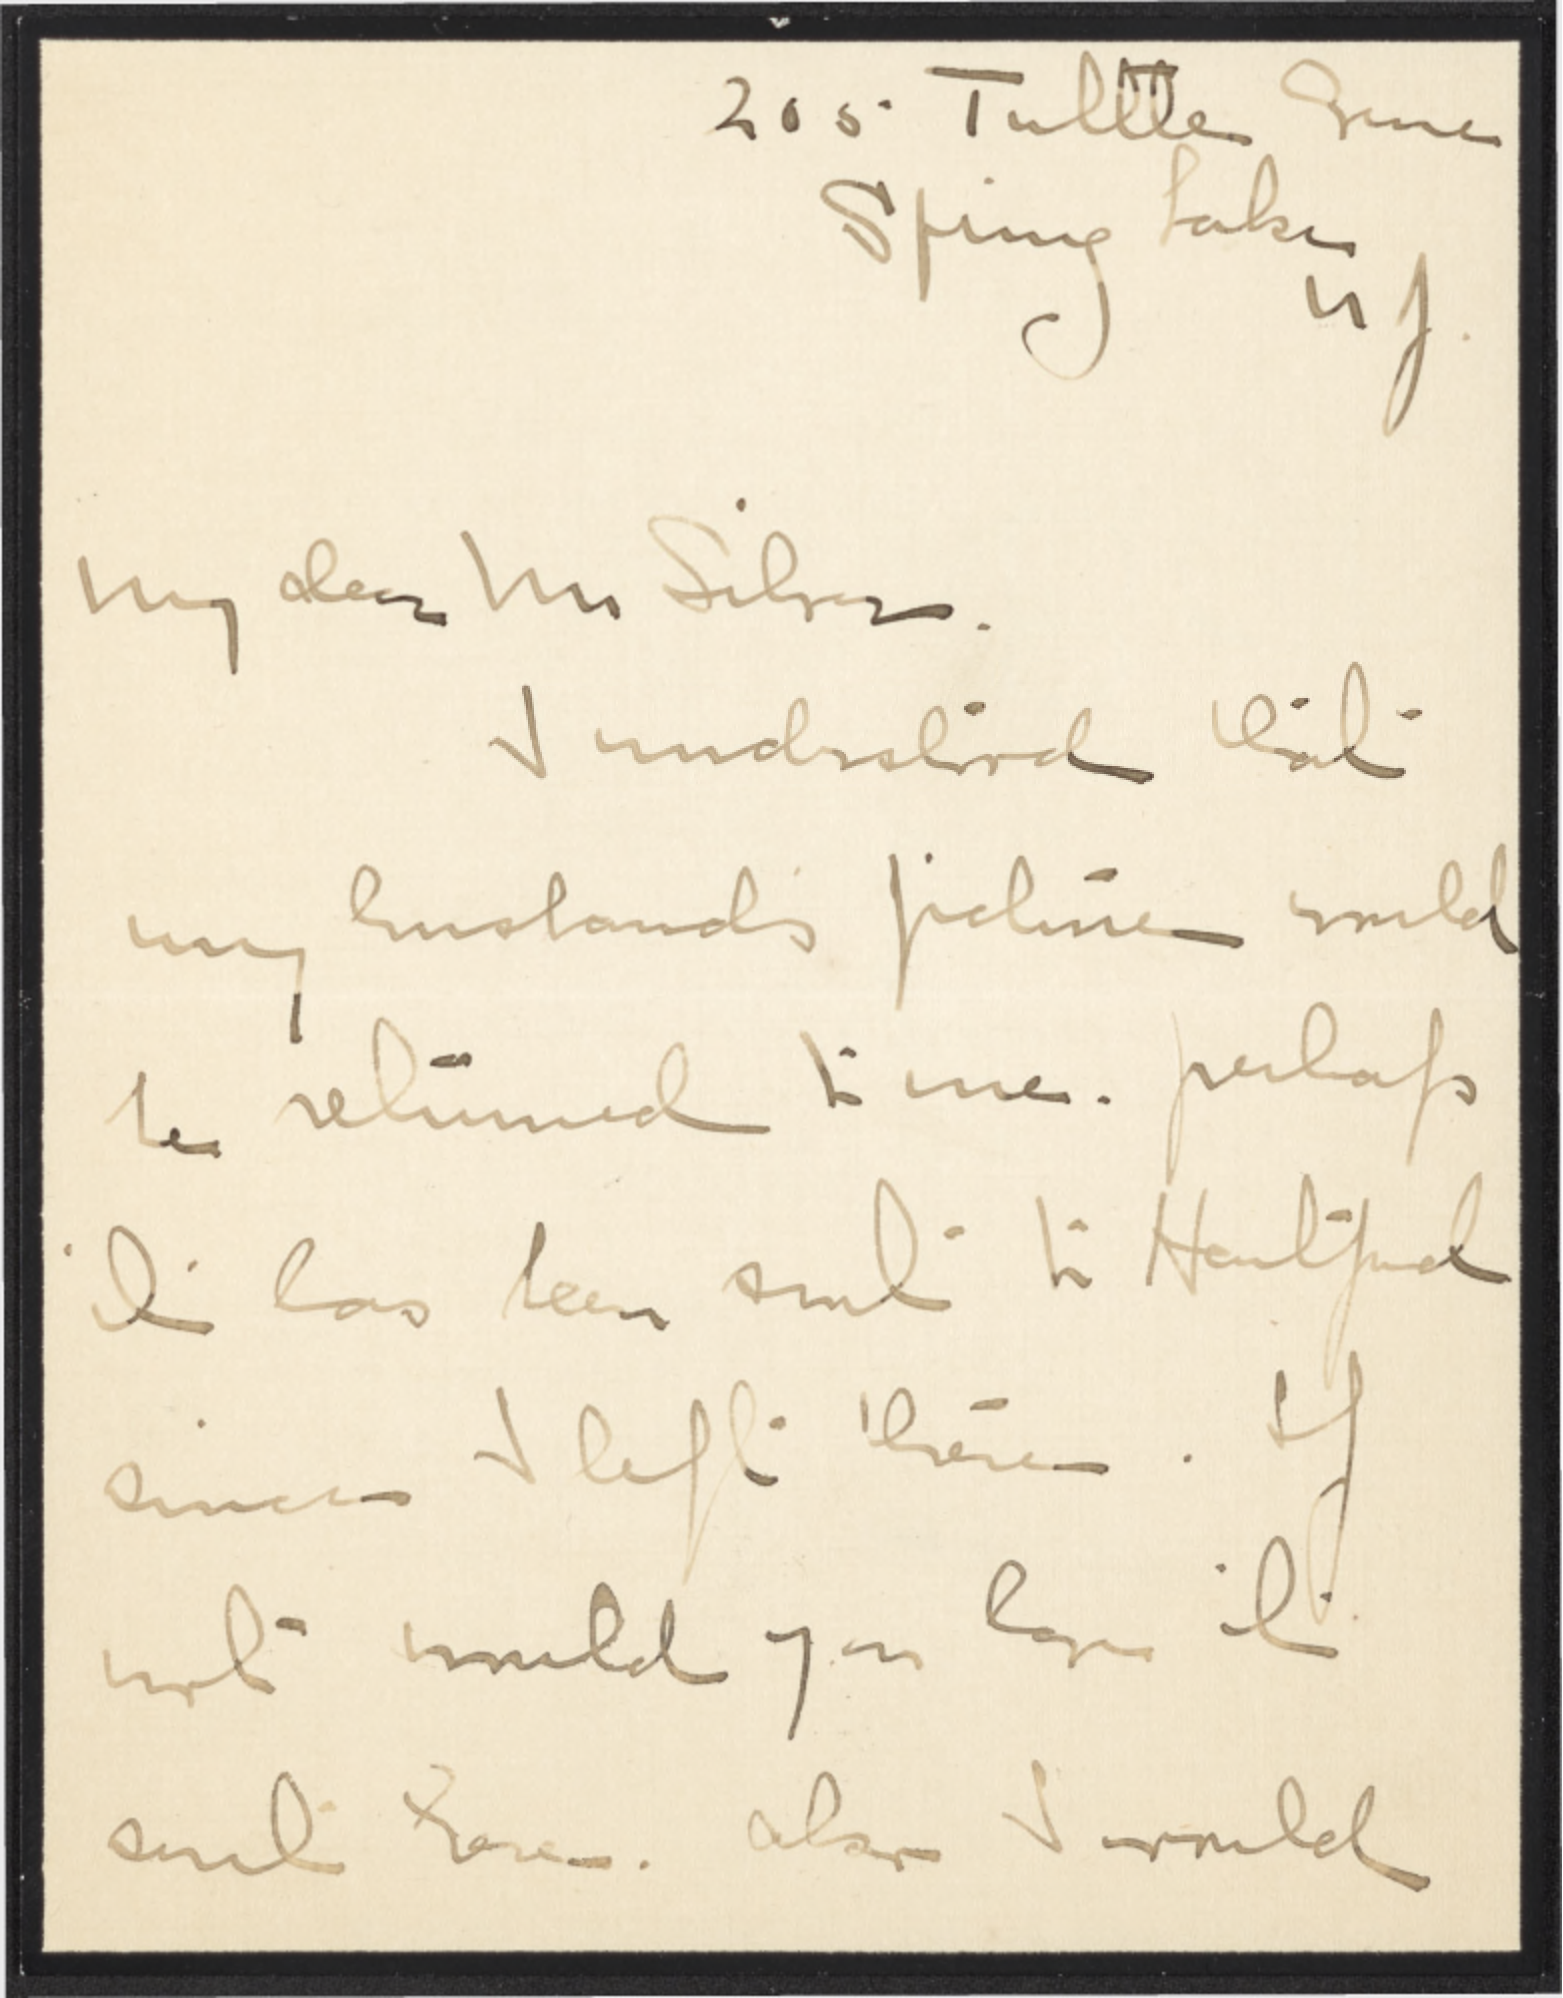 205 Tuttle Avenue
Spring Lake
N J.
My dear Mr Silver.
I understood that
my husband's picture would
be returned to me. perhaps
it has been sent to Hartford
since I left there. If
not would you have it
sent here. also I would